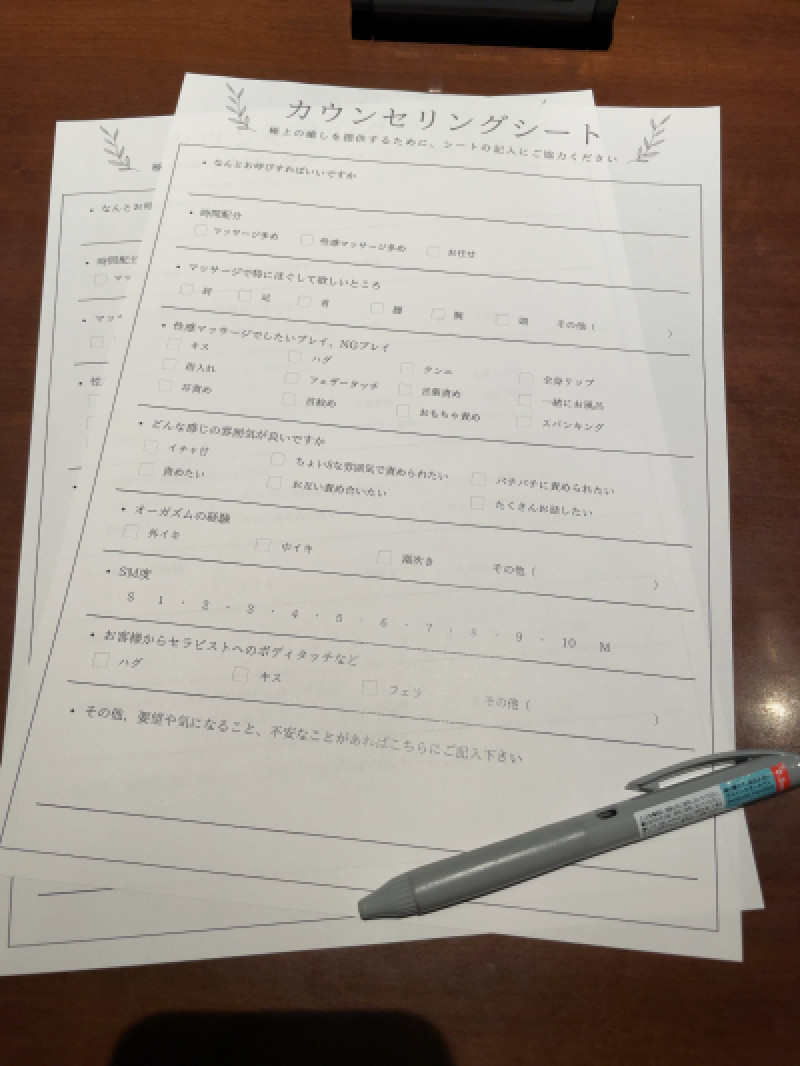 カウンセリングシート
極上の癒しを提供するために、シートの記入にご協力ください
• なんとお呼びすればいいですか
• 時間配分
マッサージ多め 性感マッサージ多め お任せ
• マッサージで特にほぐして欲しいところ
肩 足 首 腰 腕 頭 その他（ ）
• 性感マッサージでしたいプレイ、NGプレイ
キス ハグ クンニ 全身リップ
指入れ フェザータッチ 言葉責め 一緒にお風呂
耳責め 首絞め おもちゃ責め スパンキング
• どんな感じの雰囲気が良いですか
イチャ甘 ちょいSな雰囲気で責められたい バチバチに責められたい
責めたい お互い責め合いたい たくさんお話したい
• オーガズムの経験
外イキ 中イキ 潮吹き その他（ ）
• SM度
S 1 · 2 · 3 · 4 · 5 · 6 · 7 · 8 · 9 · 10 M
• お客様からセラピストへのボディタッチなど
ハグ キス フェラ その他（ ）
• その他，要望や気になること、不安なことがあればこちらにご記入下さい
• なんとお呼
• 時間配分
マッ
• マッ
• 性